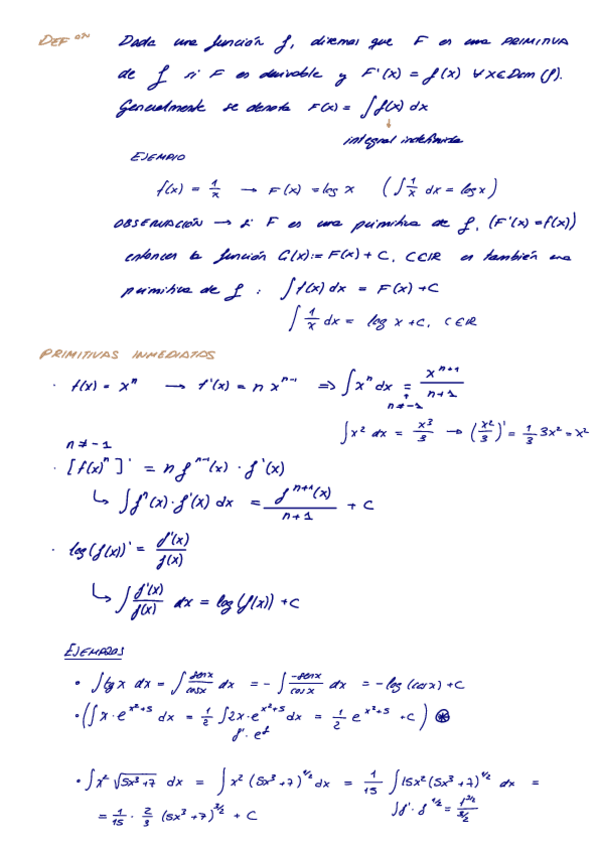 DEFᵒⁿ Dada una función f, diremos que F es una PRIMITIVA
de f si F es derivable y F'(x) = f(x) ∀x∈Dom(f).
Generalmente se denota F(x) = ∫f(x) dx
↓
integral indefinida
EJEMPIO
f(x) = 1/x → F(x) = log x (∫ 1/x dx = log x)
OBSERVACIÓN → Si F es una primitiva de f, (F'(x) = f(x))
entonces la función G(x):= F(x) + C, C∈IR es también una
primitiva de f : ∫f(x) dx = F(x) + C
∫ 1/x dx = log x + C, C∈IR
PRIMITIVAS INMEDIATAS
· f(x) = xⁿ → f'(x) = n xⁿ⁻¹ ⇒ ∫xⁿ dx = xⁿ⁺¹/(n+1)
n≠-1
∫x² dx = x³/3 → (x²/3)' = 1/3 3x² = x²
n≠-1
· [f(x)ⁿ]' = n fⁿ⁻¹(x) · f'(x)
↳ ∫fⁿ(x)·f'(x) dx = fⁿ⁺¹(x)/(n+1) + C
· log(f(x))' = f'(x)/f(x)
↳ ∫ f'(x)/f(x) dx = log(f(x)) + C
EJEMPLOS
• ∫tg x dx = ∫ senx/cosx dx = - ∫ -senx/cosx dx = -log(cosx) + C
• (∫x·e^(x²+5) dx = 1/2 ∫2x·e^(x²+5) dx = 1/2 e^(x²+5) + C) ⊛
f'·e^f
• ∫x² √(5x³+7) dx = ∫x² (5x³+7)^(1/2) dx = 1/15 ∫15x² (5x³+7)^(1/2) dx =
= 1/15 · 2/3 (5x³+7)^(3/2) + C ∫f'·f^(1/2) = f^(3/2)/(3/2)